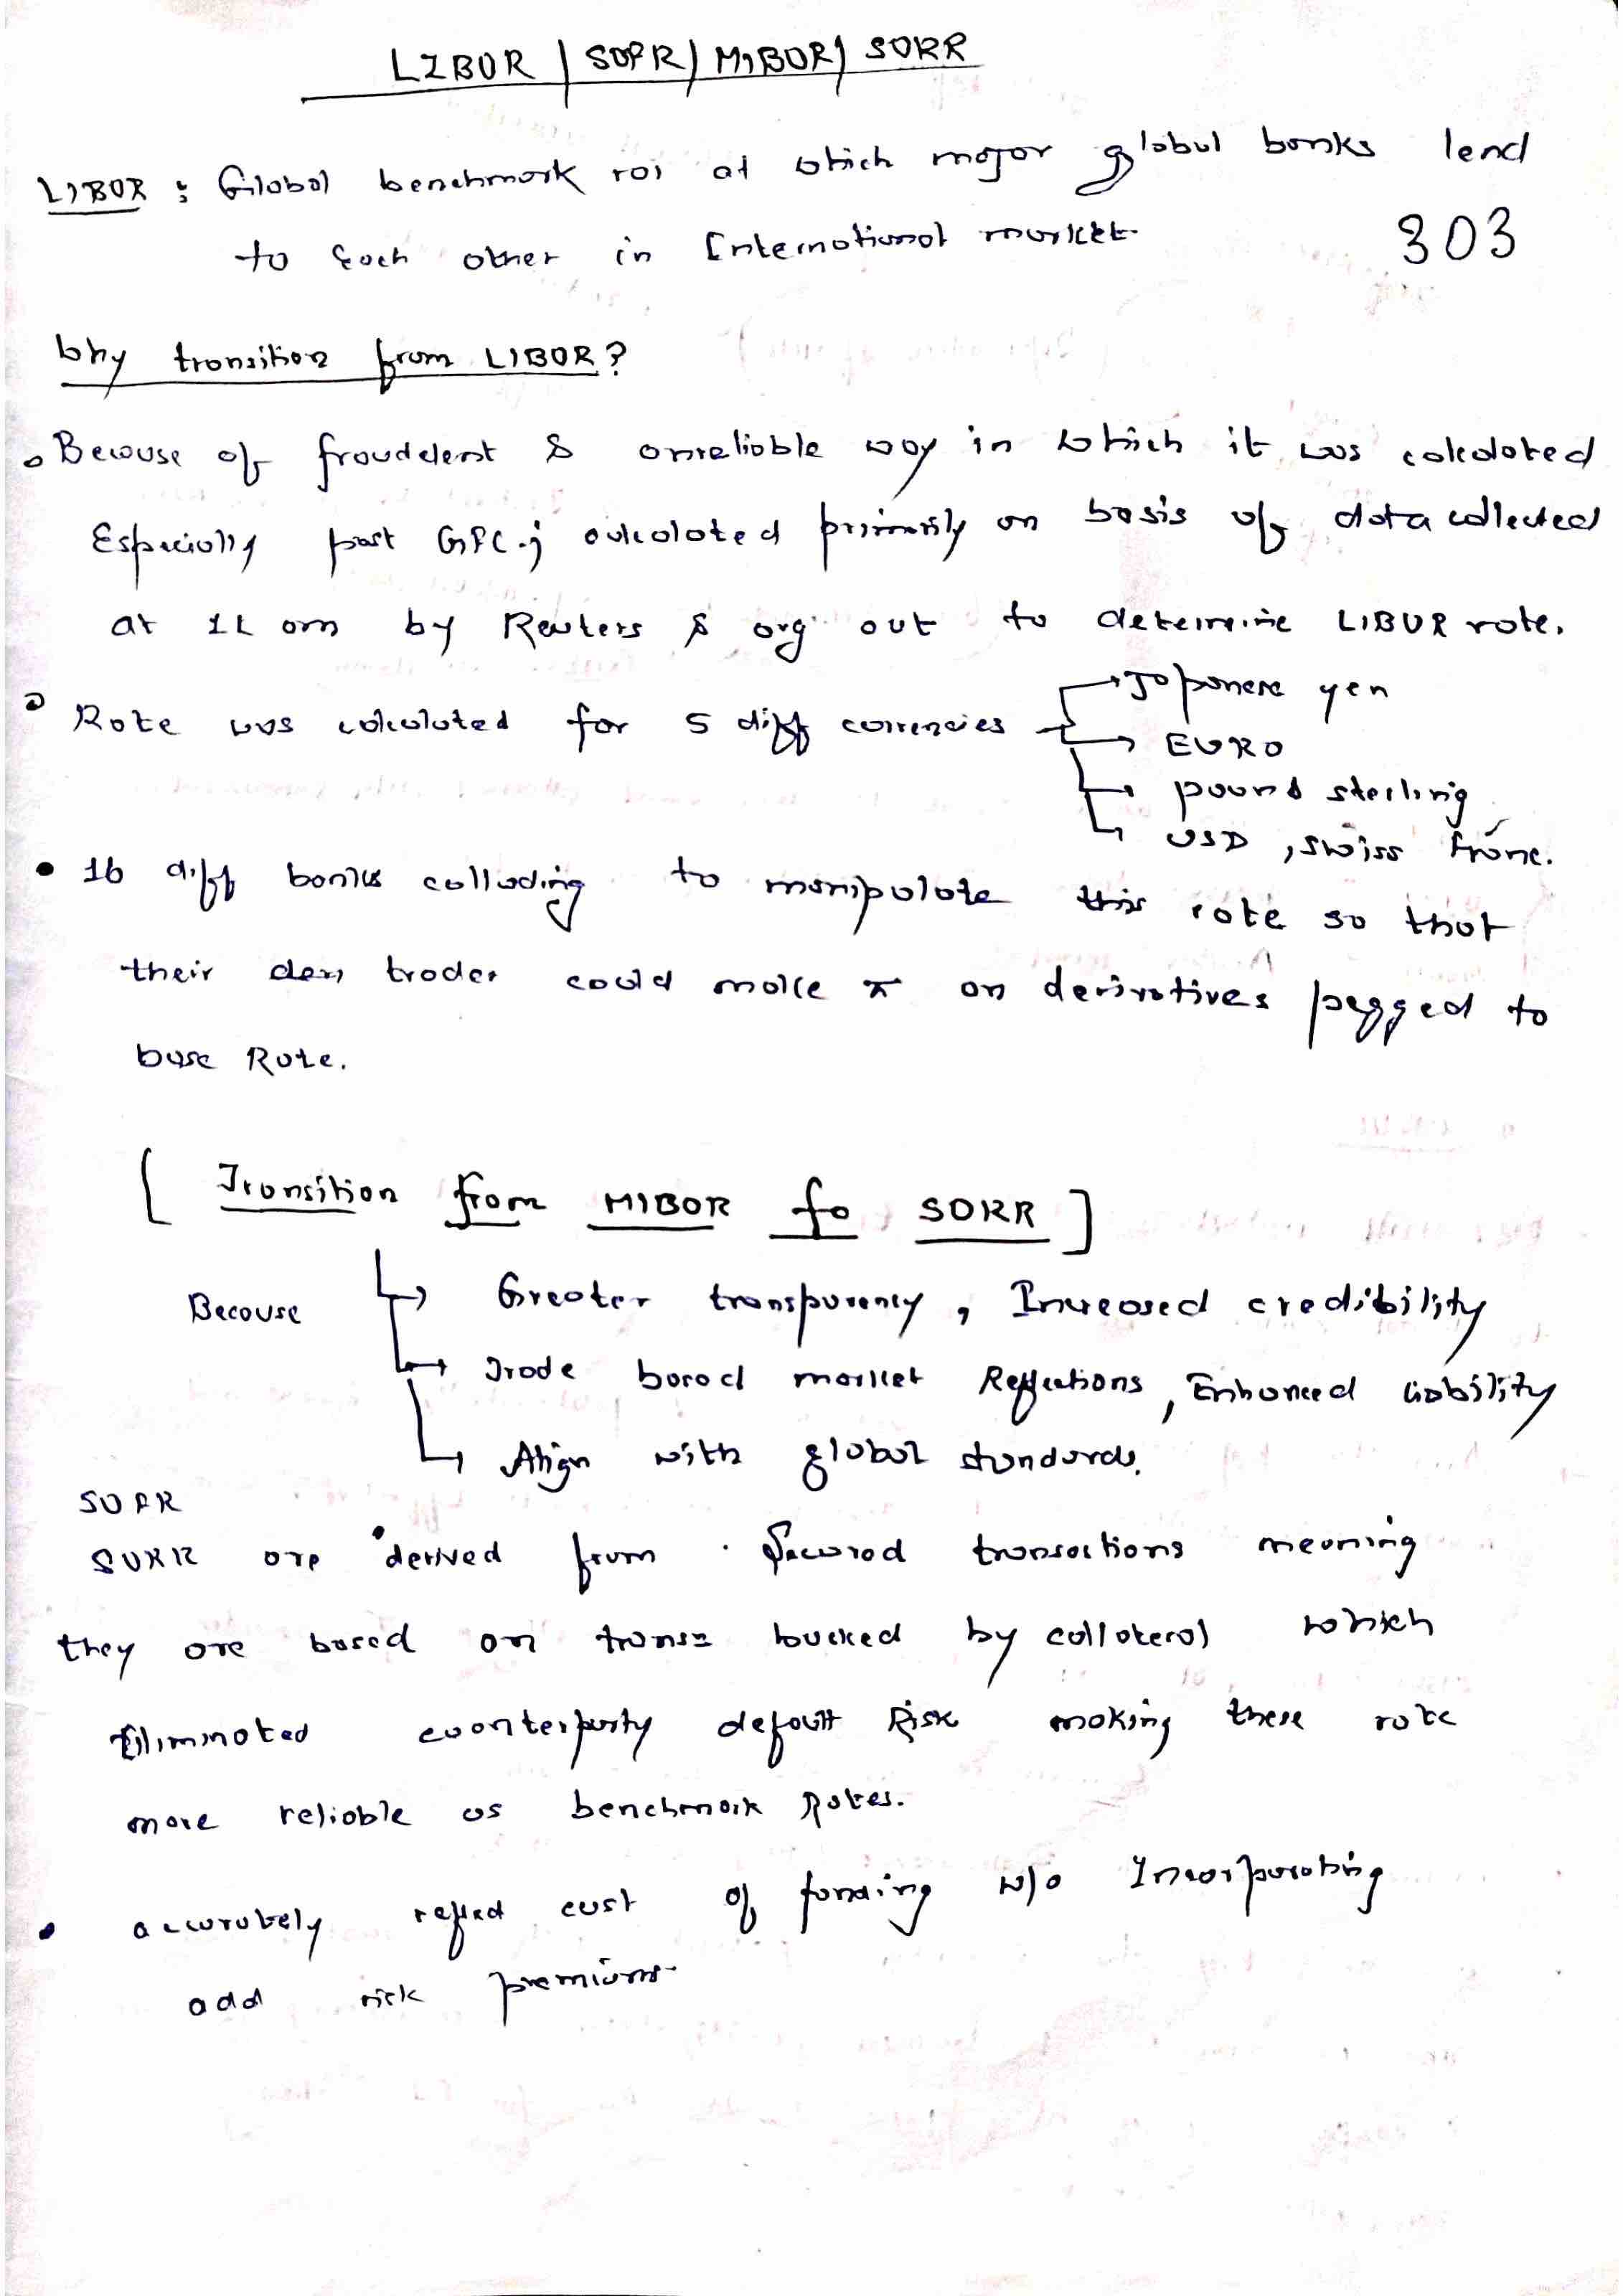 LIBOR / SOFR / MIBOR / SORR
LIBOR : Global benchmark roi at which major global banks lend
to Each other in International market.
303
Why transition from LIBOR?
Because of fraudelent & unreliable way in which it was calculated
Especially post GFC.; calculated primarily on basis of data collected
at 11 am by Reuters & org out to determine LIBOR rate.
Rate was calculated for 5 diff currencies → Japanese yen
→ EURO
→ pound sterling
→ USD, Swiss franc.
• 16 diff banks colluding to manipulate this rate so that
their trader could make π on derivatives pegged to
base Rate.
[ Transition from MIBOR to SORR ]
Because → Greater transparency, Increased credibility
→ Trade based market Reflections, Enhanced liability
→ Align with global standards.
SOFR
SORR are derived from Secured transactions meaning
they are based on trans= backed by collateral which
Eliminated counterparty default Risk making these rate
more reliable as benchmark Rates.
• accurately reflect cost of funding w/o Incorporating
add risk premium.